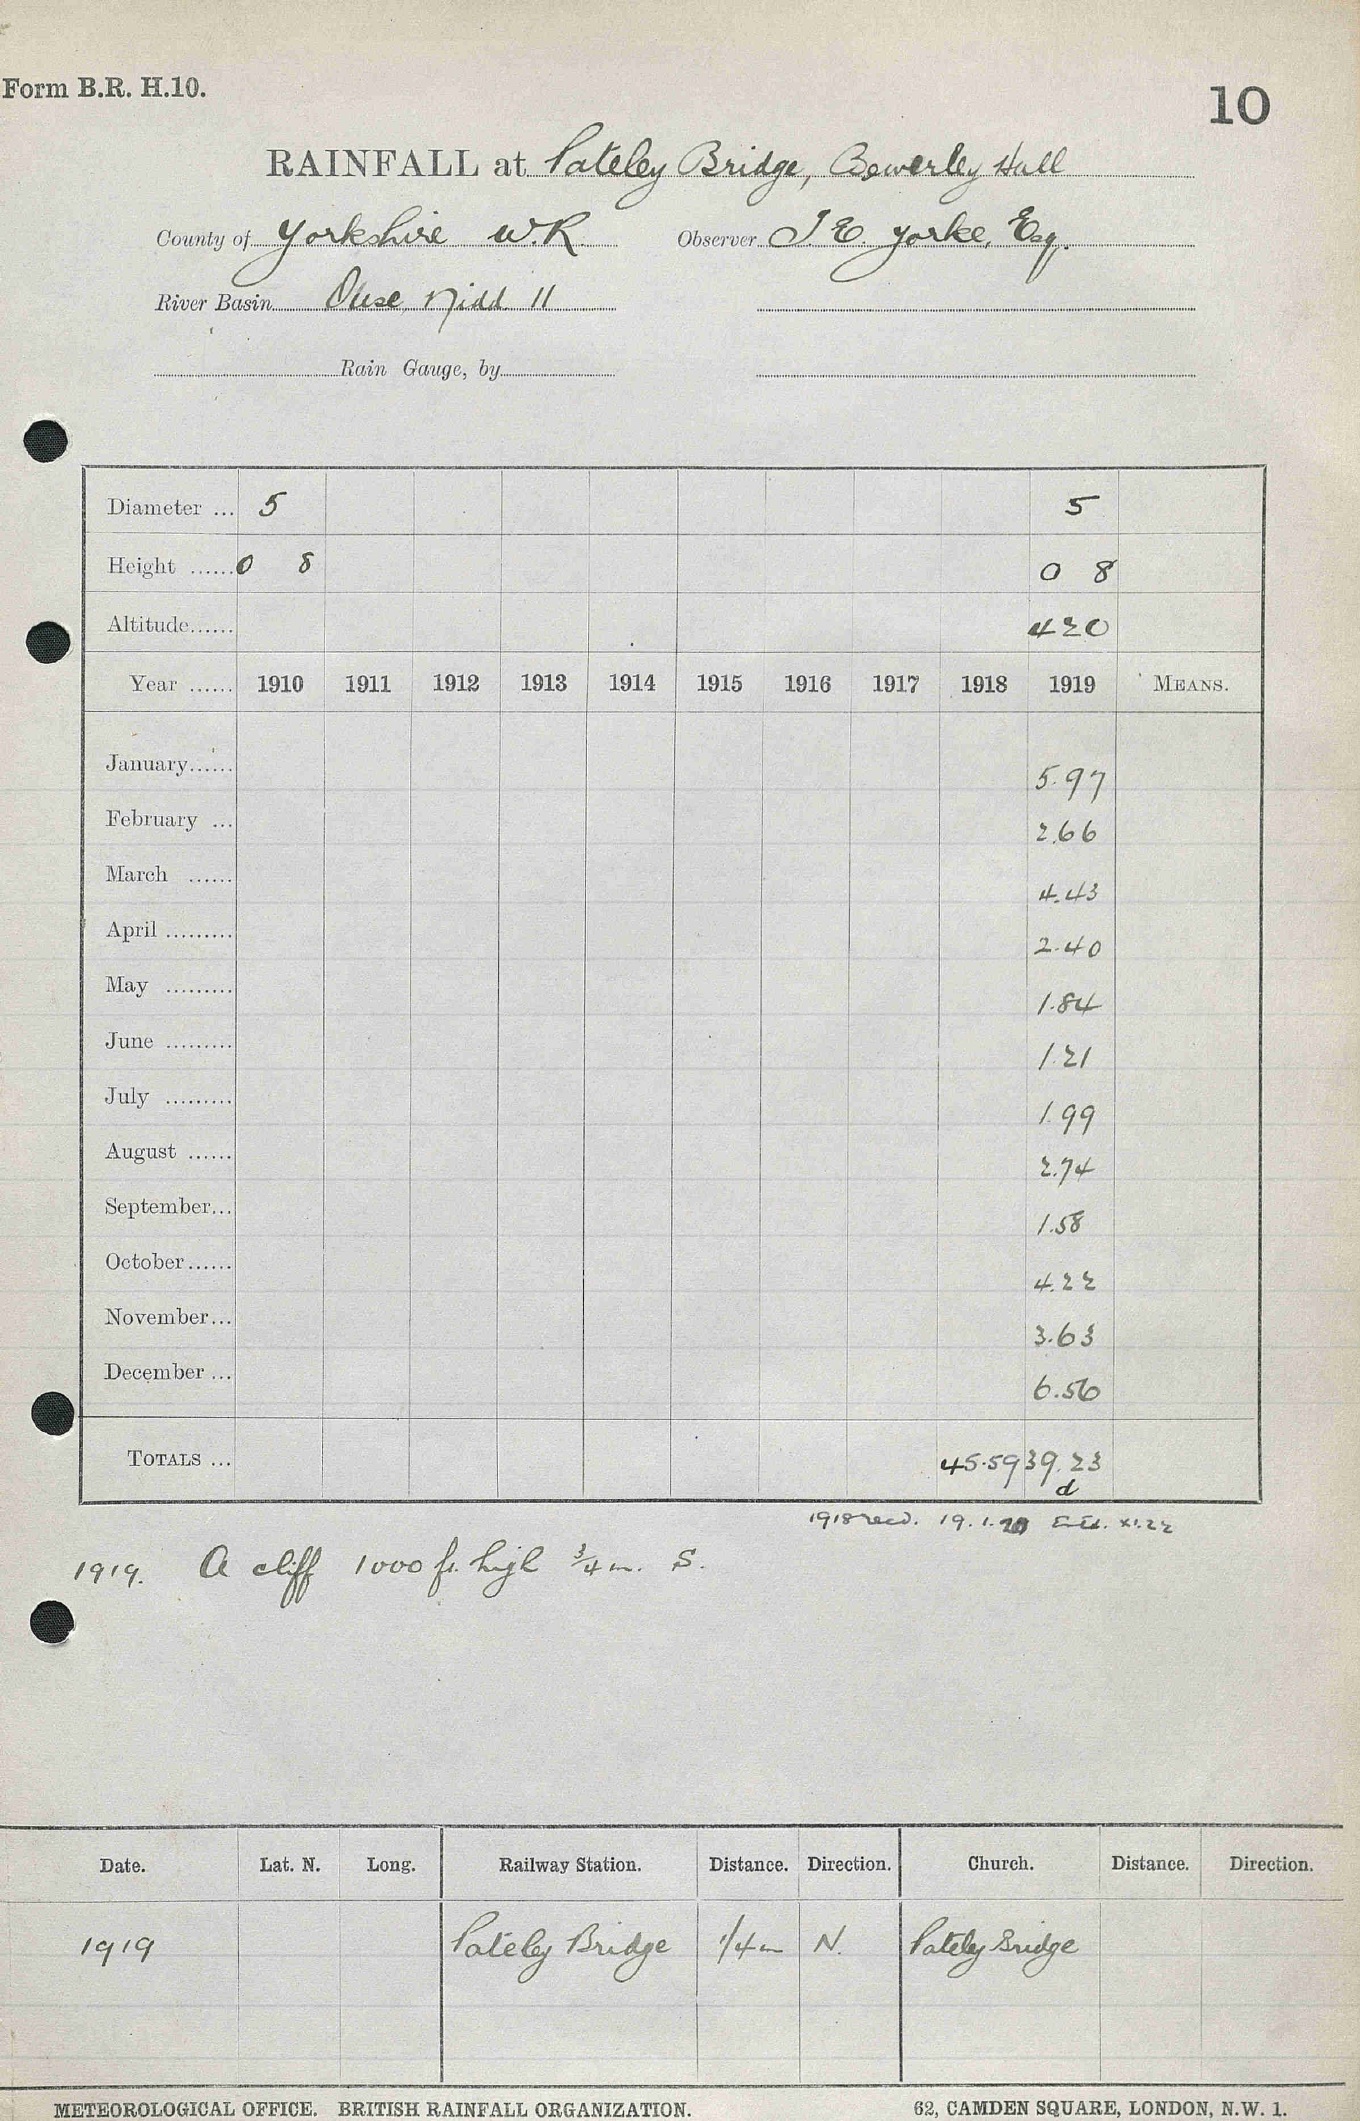 Form B.R. H.10.
10
RAINFALL at Pateley Bridge, Bewerley Hall
County of Yorkshire W.R. Observer J E. Yorke, Esq.
River Basin Ouse, Nidd 11
Rain Gauge, by
Diameter ... 5 5
Height ...... 0 8 0 8
Altitude...... 420
Year ...... 1910 1911 1912 1913 1914 1915 1916 1917 1918 1919 MEANS.
January...... 5.97
February ... 2.66
March ...... 4.43
April ......... 2.40
May ......... 1.84
June ......... 1.21
July ......... 1.99
August ...... 2.74
September... 1.58
October...... 4.22
November... 3.63
December ... 6.56
TOTALS ... 45.59 39.23
d
1918 recd. 19.1.20 XI.22
1919. A cliff 1000 ft. high 3/4 m. S.
Date. Lat. N. Long. Railway Station. Distance. Direction. Church. Distance. Direction.
1919 Pateley Bridge 1/4 m N. Pateley Bridge
METEOROLOGICAL OFFICE. BRITISH RAINFALL ORGANIZATION. 62, CAMDEN SQUARE, LONDON, N.W. 1.